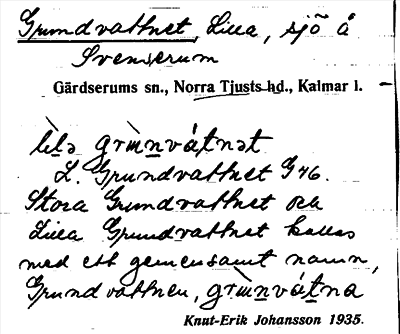 Grundvattnet, Lilla, sjö å
Svenserum
Gärdserums sn., Norra Tjusts hd., Kalmar l.
lìlə grùnvátnət
L. Grundvattnet G46.
Stora Grundvattnet och
Lilla Grundvattnet kallas
med ett gemensamt namn,
Grundvattnen, grùnvátna
Knut-Erik Johansson 1935.